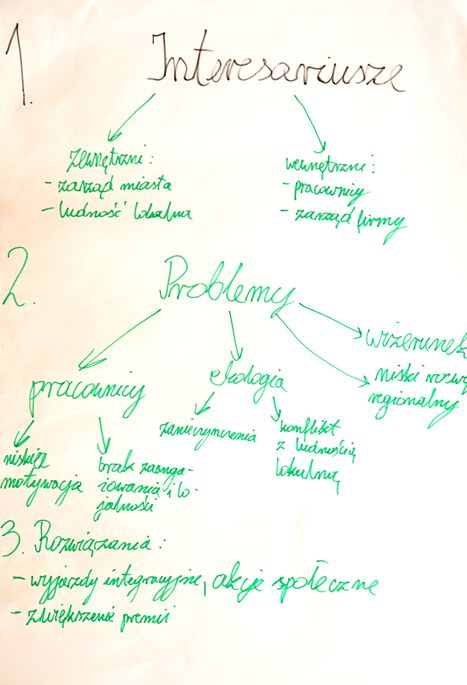 1. Interesariusze
zewnętrzni:
- zarząd miasta
- ludność lokalna
wewnętrzni:
- pracownicy
- zarząd firmy
2. Problemy
pracownicy
niska
motywacja
brak zaanga-
żowania i lo-
jalności
ekologia
zanieczyszczenia
konflikt
z ludnością
lokalną
wizerunek
niski
regionalny
3. Rozwiązania:
- wyjazdy integracyjne, akcje społeczne
- zwiększenie premii